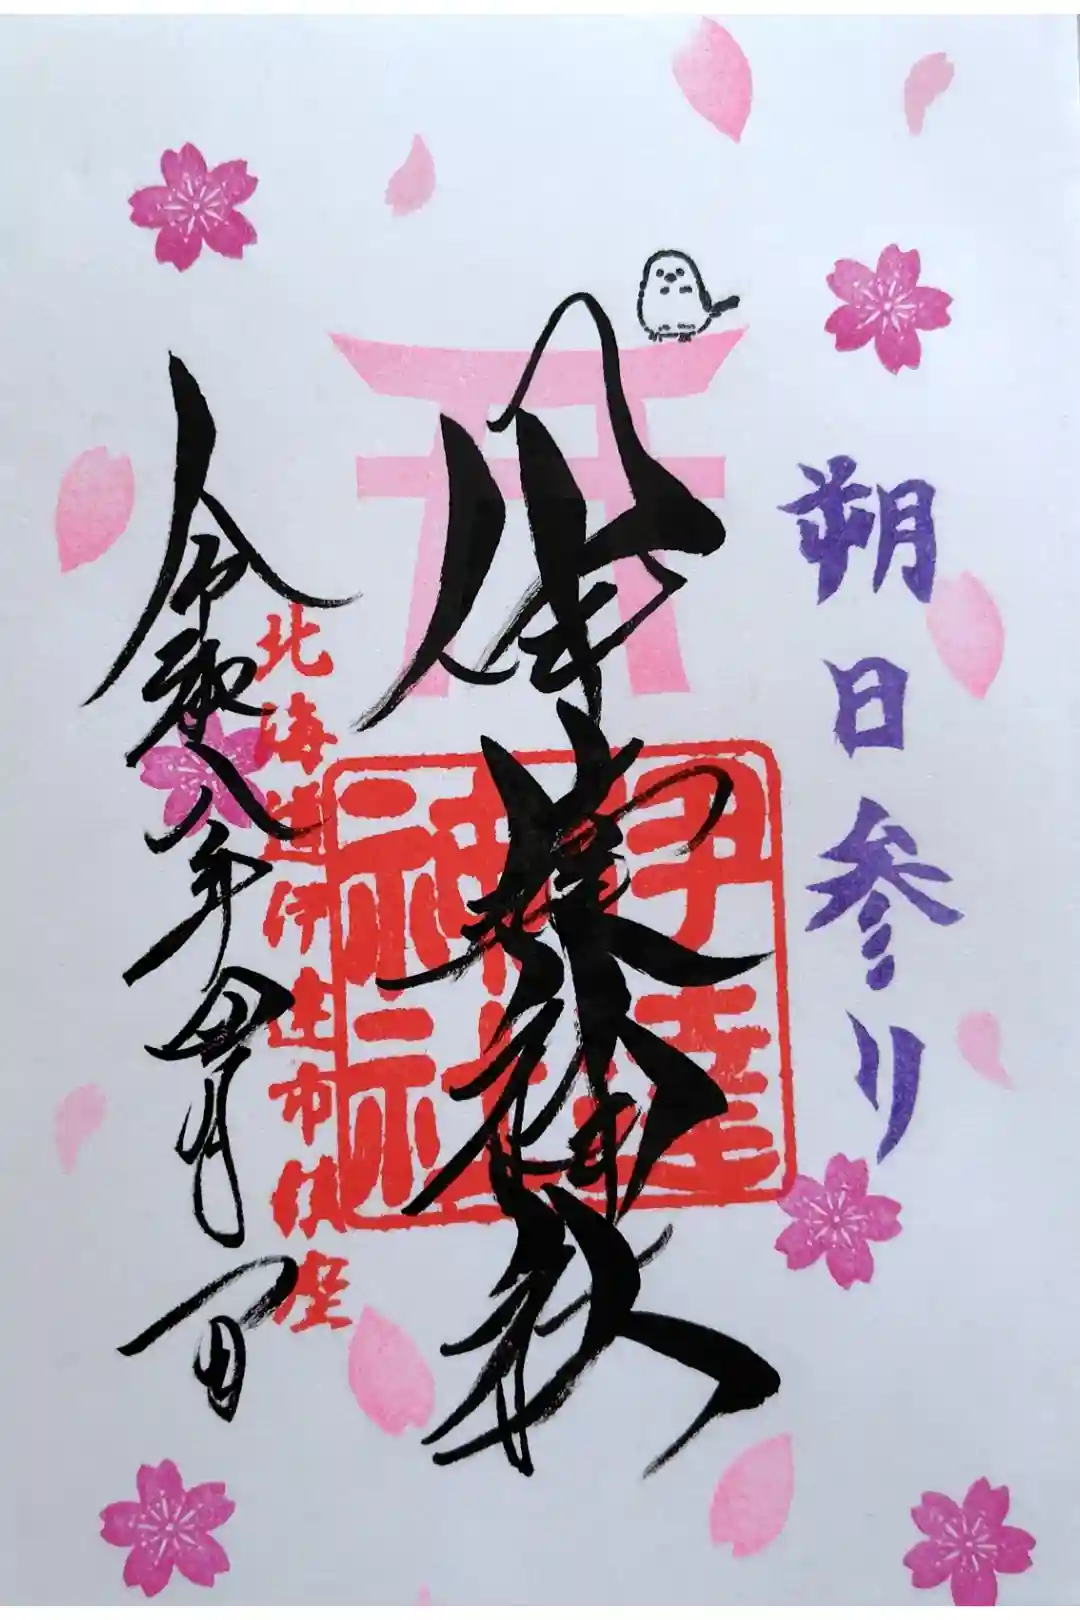 朔日参り
伊達神社
伊達神社
北海道伊達市鎮座
令和八年四月一日